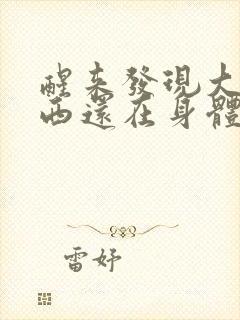 醒來發現大
西還在身體
雷妤